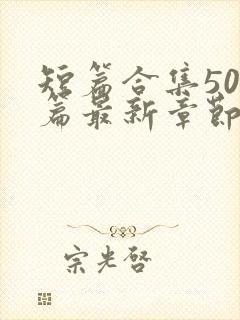 短篇合集50
篇最新章节
宗光启